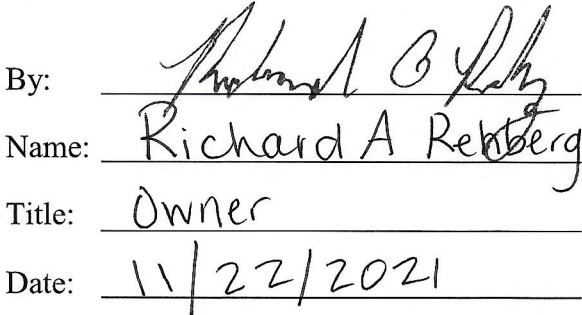 By:
Name: Richard A Rehberg
Title: Owner
Date: 11/22/2021